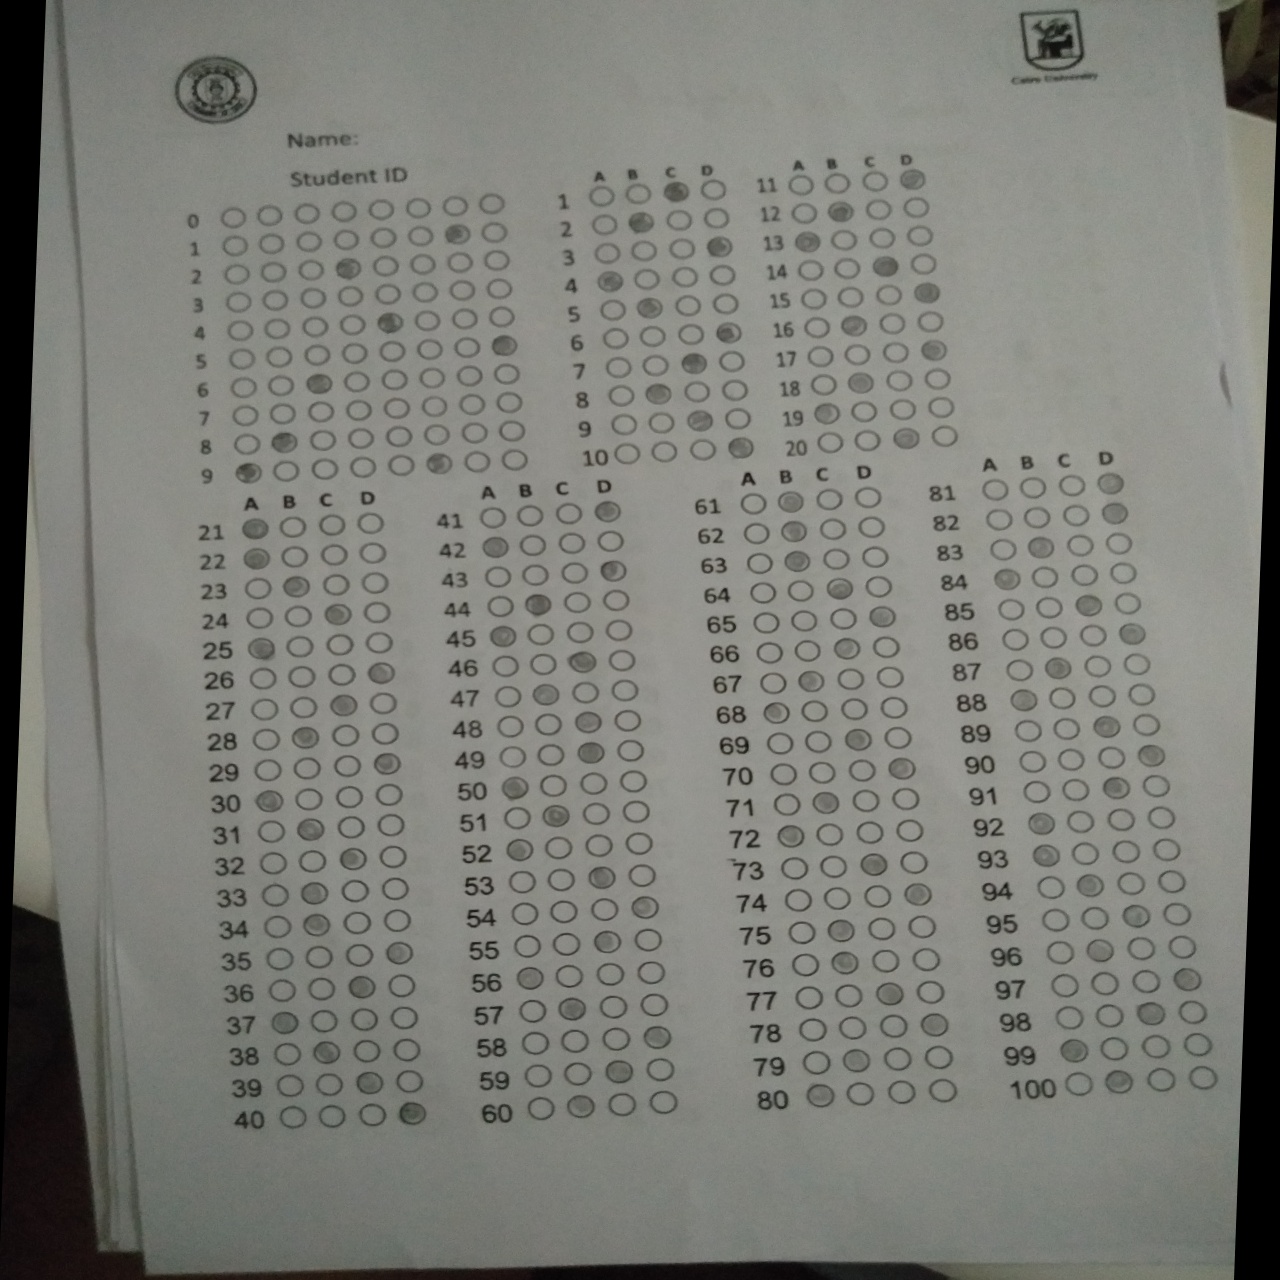 Cairo University
Name:
Student ID
A B C D
A B C D
0
1
2
3
4
5
6
7
8
9
1
2
3
4
5
6
7
8
9
10
11
12
13
14
15
16
17
18
19
20
A B C D
21
22
23
24
25
26
27
28
29
30
31
32
33
34
35
36
37
38
39
40
A B C D
41
42
43
44
45
46
47
48
49
50
51
52
53
54
55
56
57
58
59
60
A B C D
61
62
63
64
65
66
67
68
69
70
71
72
73
74
75
76
77
78
79
80
A B C D
81
82
83
84
85
86
87
88
89
90
91
92
93
94
95
96
97
98
99
100